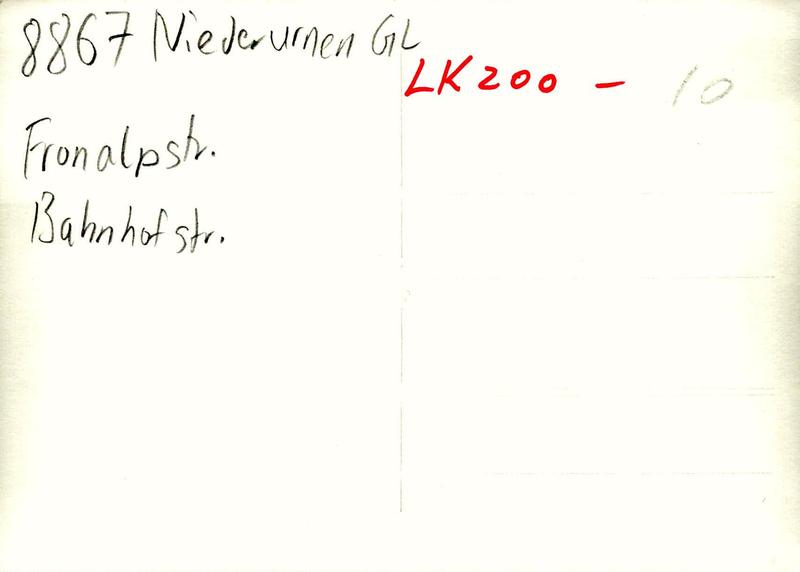 8867 Niederurnen GL
LK 200 – 10
Fronalpstr.
Bahnhofstr.